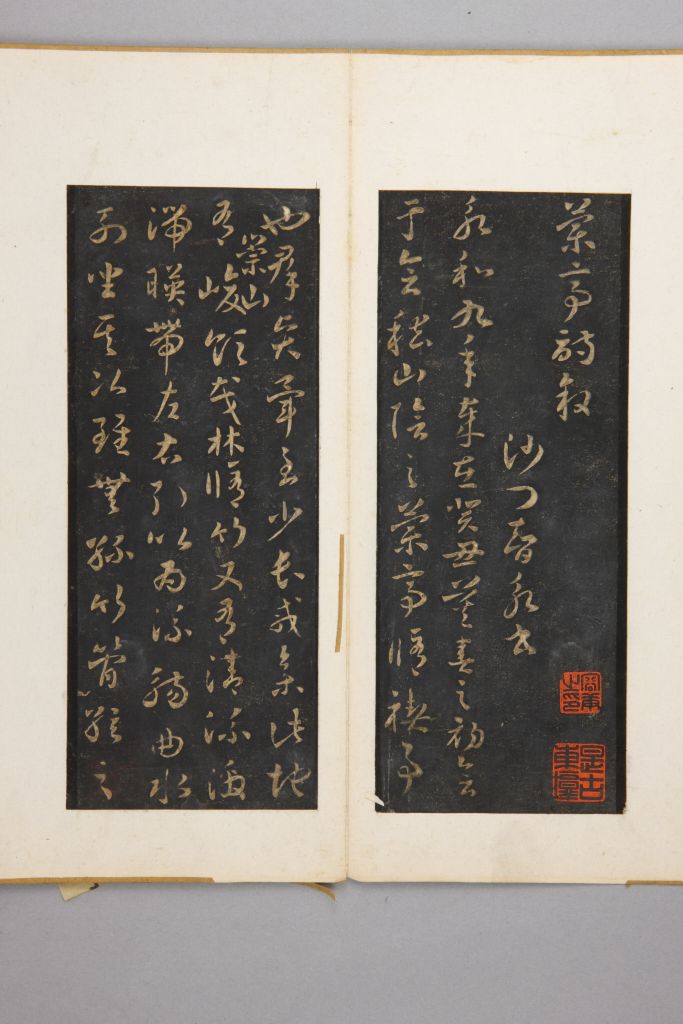 蘭亭詩敘
沙門智永書
永和九年歲在癸丑暮春之初會
于會稽山陰之蘭亭脩禊事
也群賢畢至少長咸集此地
有崇山峻領茂林脩竹又有清流激
湍暎帶左右引以為流觴曲水
列坐其次雖無絲竹管弦之